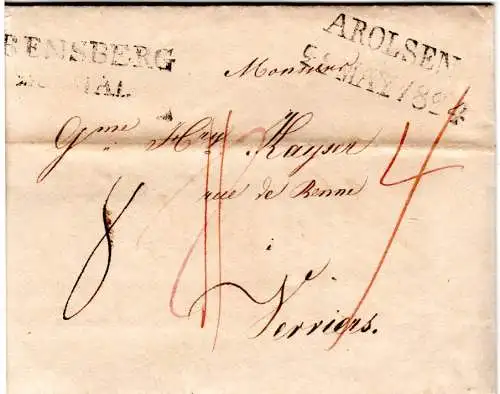 BENSBERG
AROLSEN
MAY 182
Monsieur
Gme Hry Kayser
rue de Renne
à
Verviers.
8
4